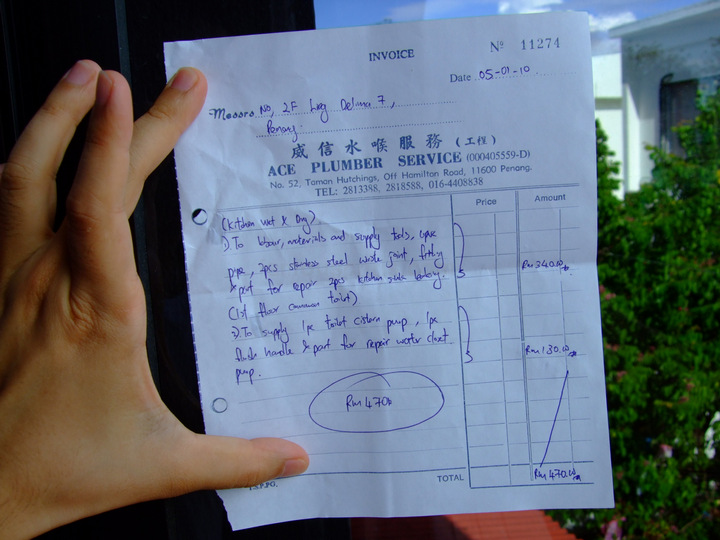 INVOICE
Nº 11274
Date 05-01-10
Messrs No, 2F Lrg Delima 7,
Penang
威信水喉服務 (工程)
ACE PLUMBER SERVICE (000405559-D)
No. 52, Taman Hutchings, Off Hamilton Road, 11600 Penang.
TEL: 2813388, 2818588, 016-4408838
Price Amount
(Kitchen Wet & Dry)
1) To labour, materials and supply tools, upvc
pipe, 2pcs stainless steel waste joint, fitting
& part for repair 2pcs kitchen sink leaking. Rm 340.00
(1st floor common toilet)
2) To supply 1pc toilet cistern pump, 1pc
flush handle & part for repair water closet Rm 130.00
pump.
Rm 470
TOTAL Rm 470.00